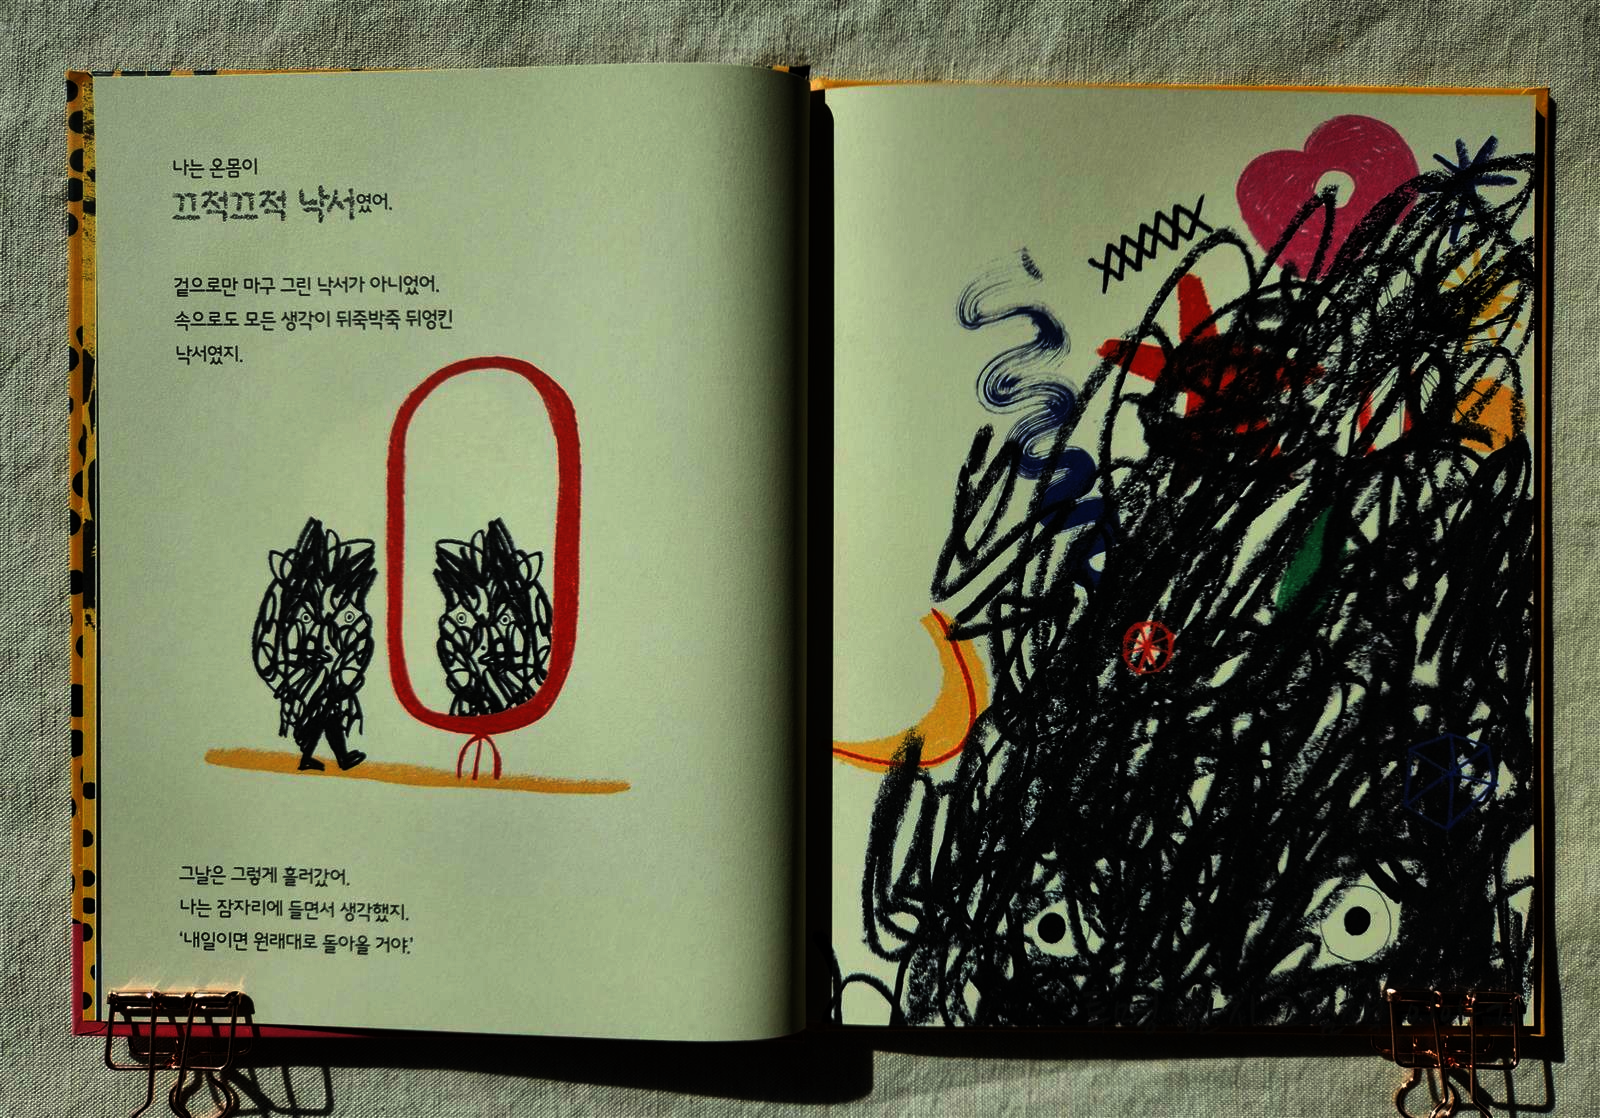 나는 온몸이
끄적끄적 낙서였어.
겉으로만 마구 그린 낙서가 아니었어.
속으로도 모든 생각이 뒤죽박죽 뒤엉킨
낙서였지.
그날은 그렇게 흘러갔어.
나는 잠자리에 들면서 생각했지.
'내일이면 원래대로 돌아올 거야.'